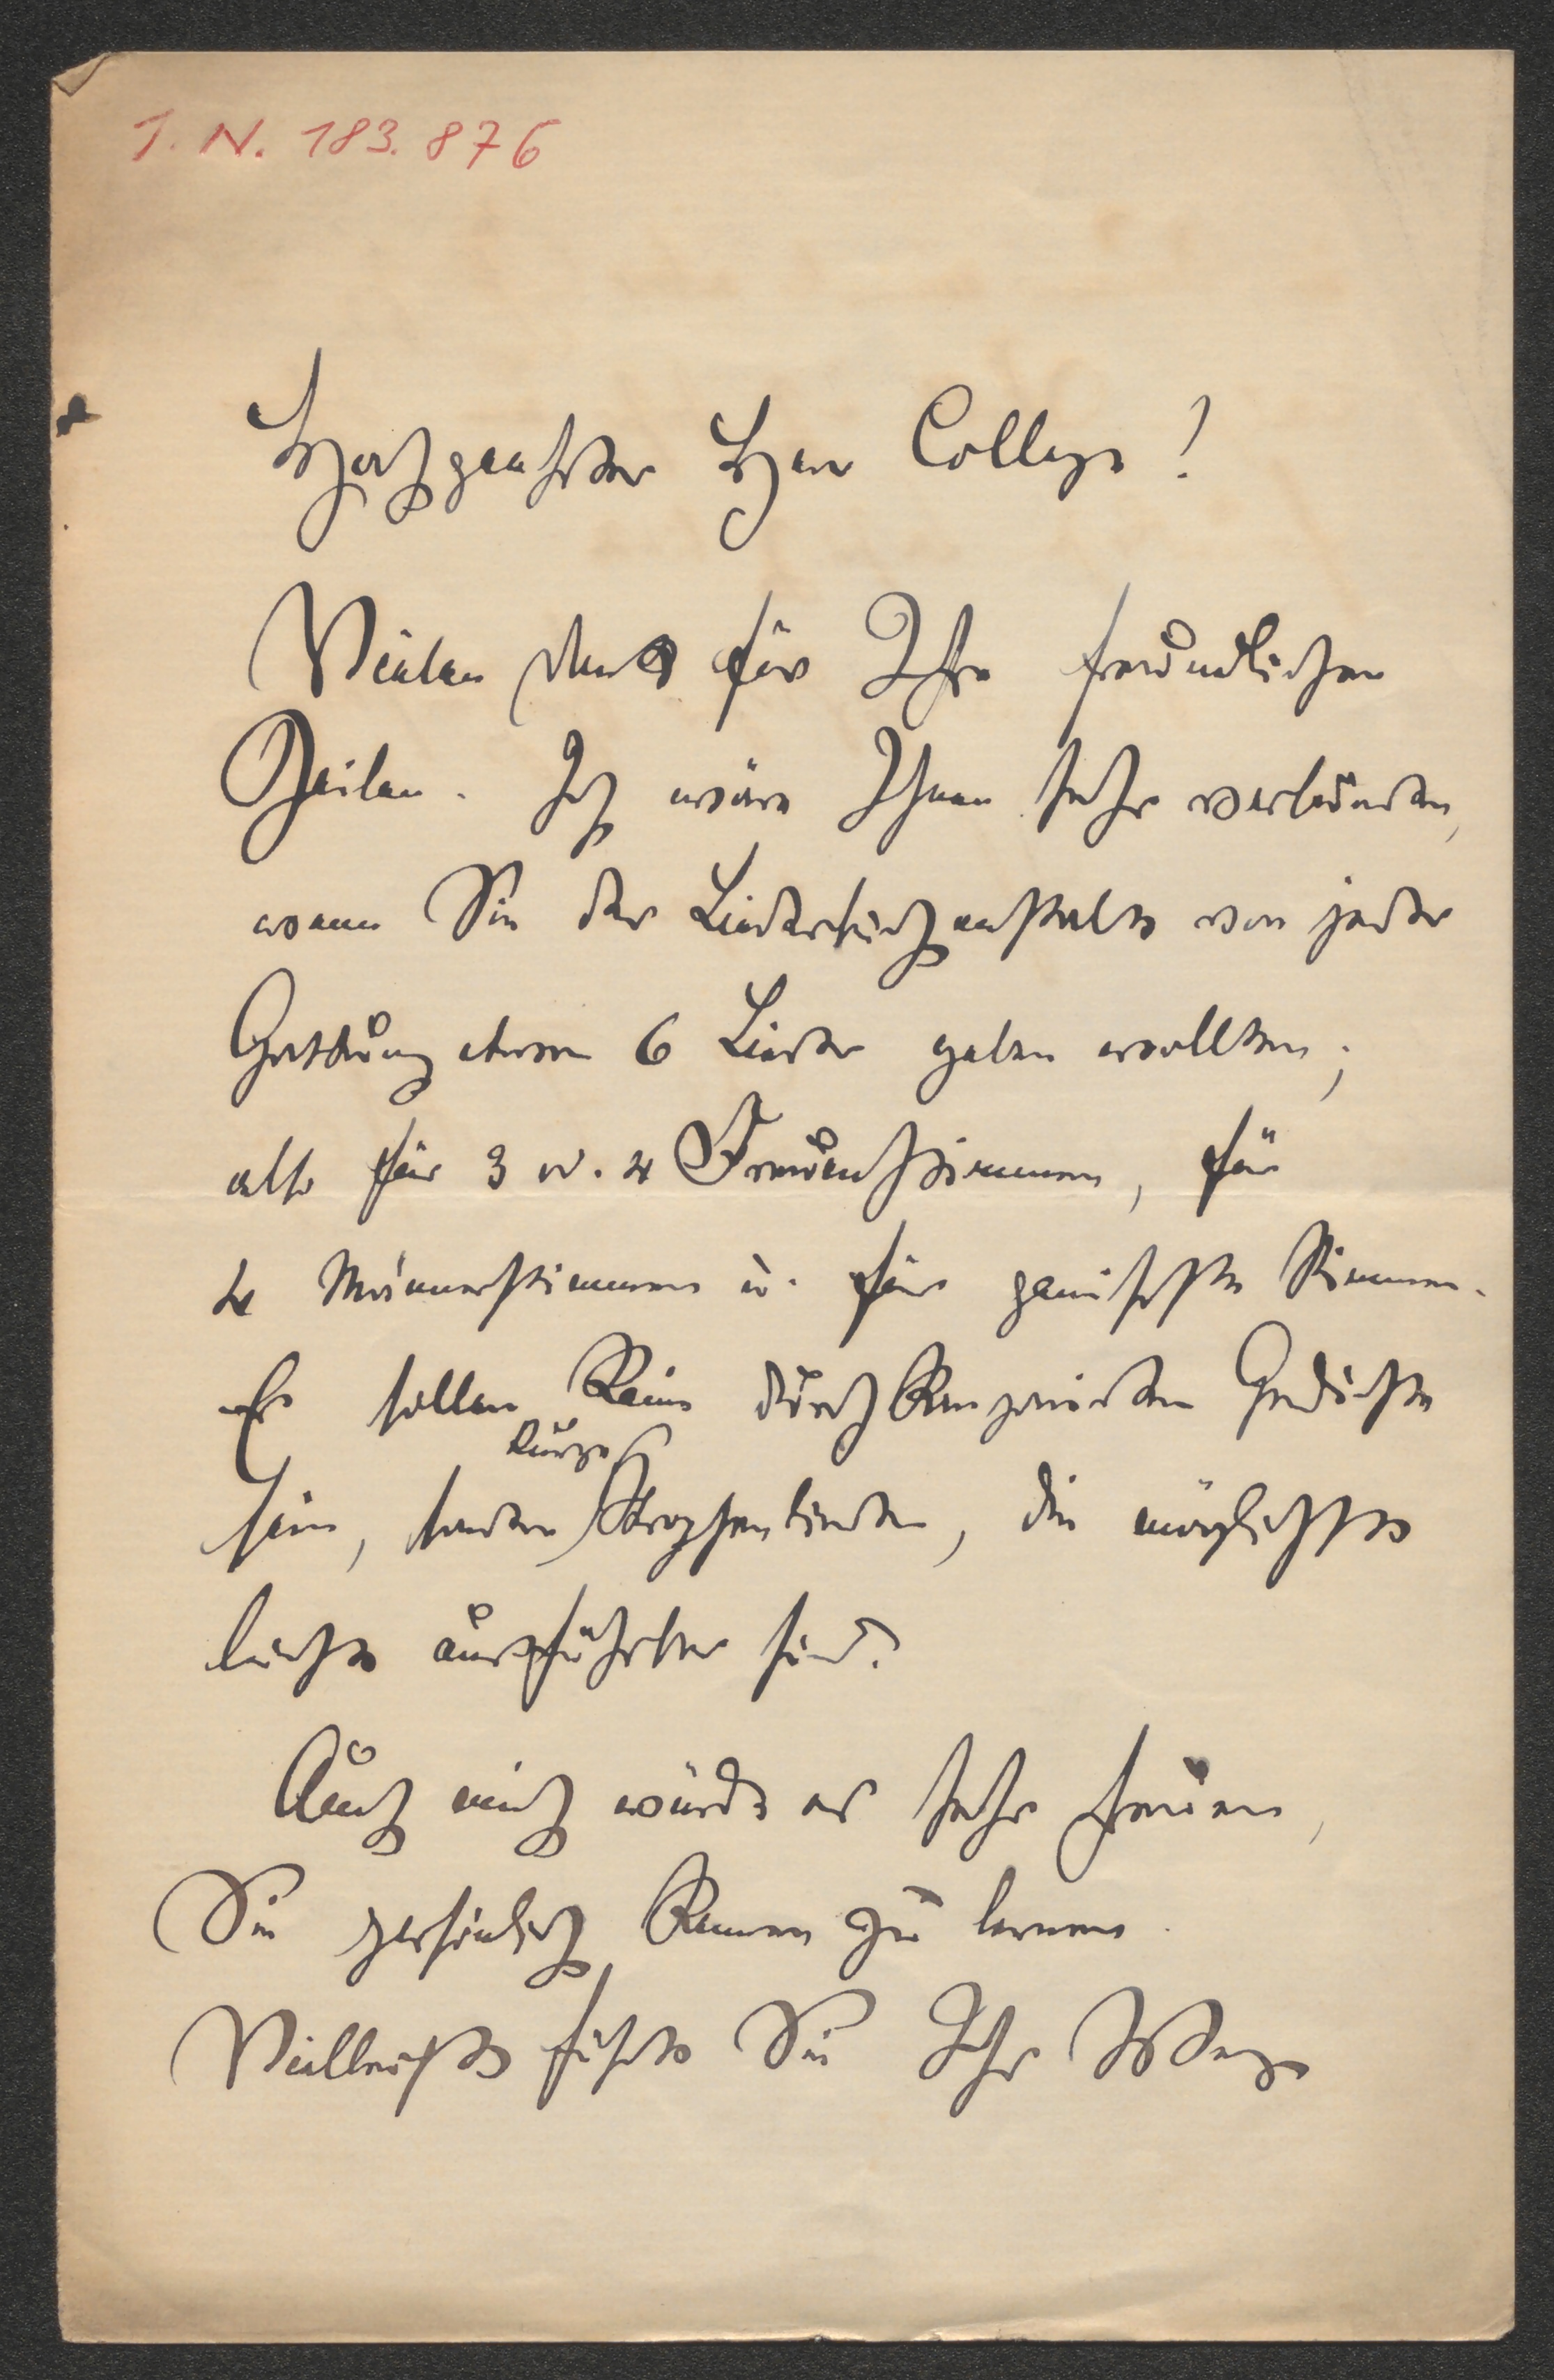 I. N. 183.876
Hochgeehrter Herr College!
Vielen Dank für Ihre freundlichen
Zeilen. Ich wäre Ihnen sehr verbunden,
wenn Sie der Liederbuchanstalt von jeder
Gattung etwa 6 Lieder geben wollten;
also für 3 u. 4 Frauenstimmen, für
4 Männerstimmen u. für gemischte Stimmen.
Es sollen keine durchkomponirten Gedichte
kurze
sein, sondern Strophenlieder, die möglichst
leicht ausführbar sind.
Auch mich würde es sehr freuen,
Sie persönlich kennen zu lernen.
Vielleicht führt Sie Ihr Weg